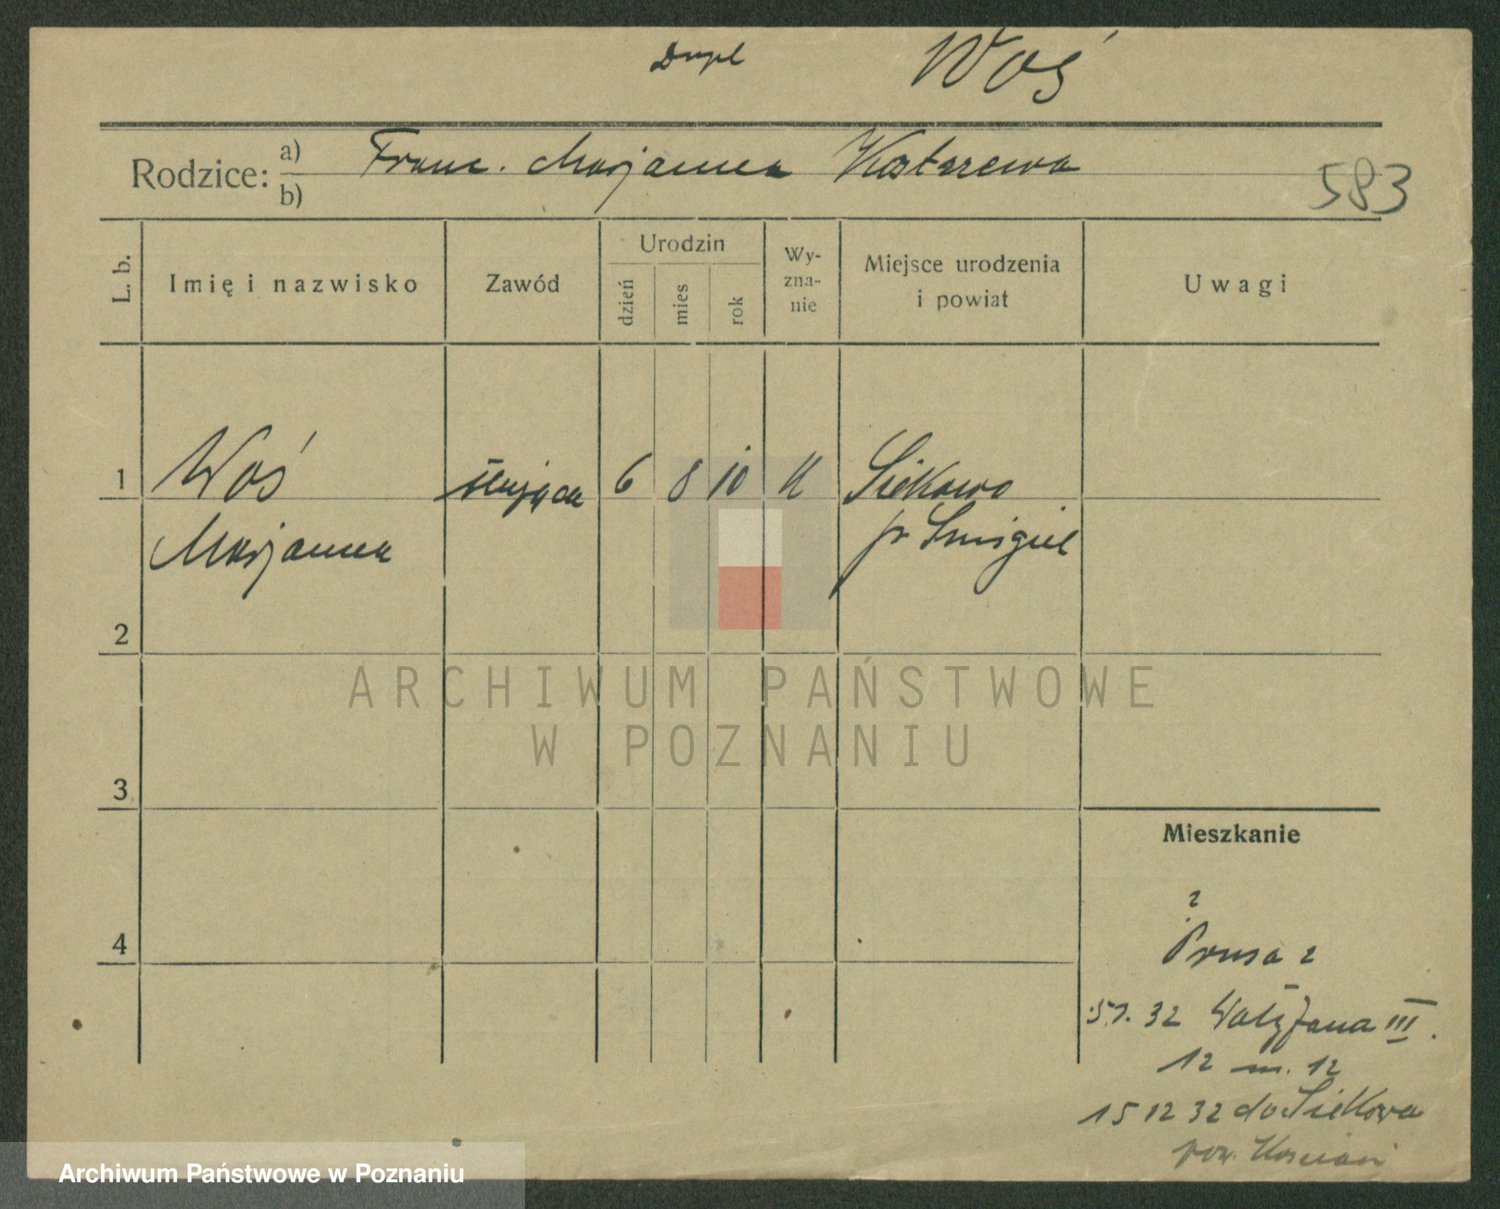 Dupl Woś
Rodzice: a) Franc. Marjanna Kostrzewa
b)
583
L. b. Imię i nazwisko Zawód Urodzin dzień mies rok Wy-zna-nie Miejsce urodzenia i powiat Uwagi
1 Woś służąca 6 8 10 K Siekowo
Marjanna p. Śmigiel
2
ARCHIWUM PAŃSTWOWE
W POZNANIU
3
Mieszkanie
2
4
Prusa 2
32 Wały Jana III.
12 m. 12
15 12 32 do Siekowa
pow. Kościan
Archiwum Państwowe w Poznaniu